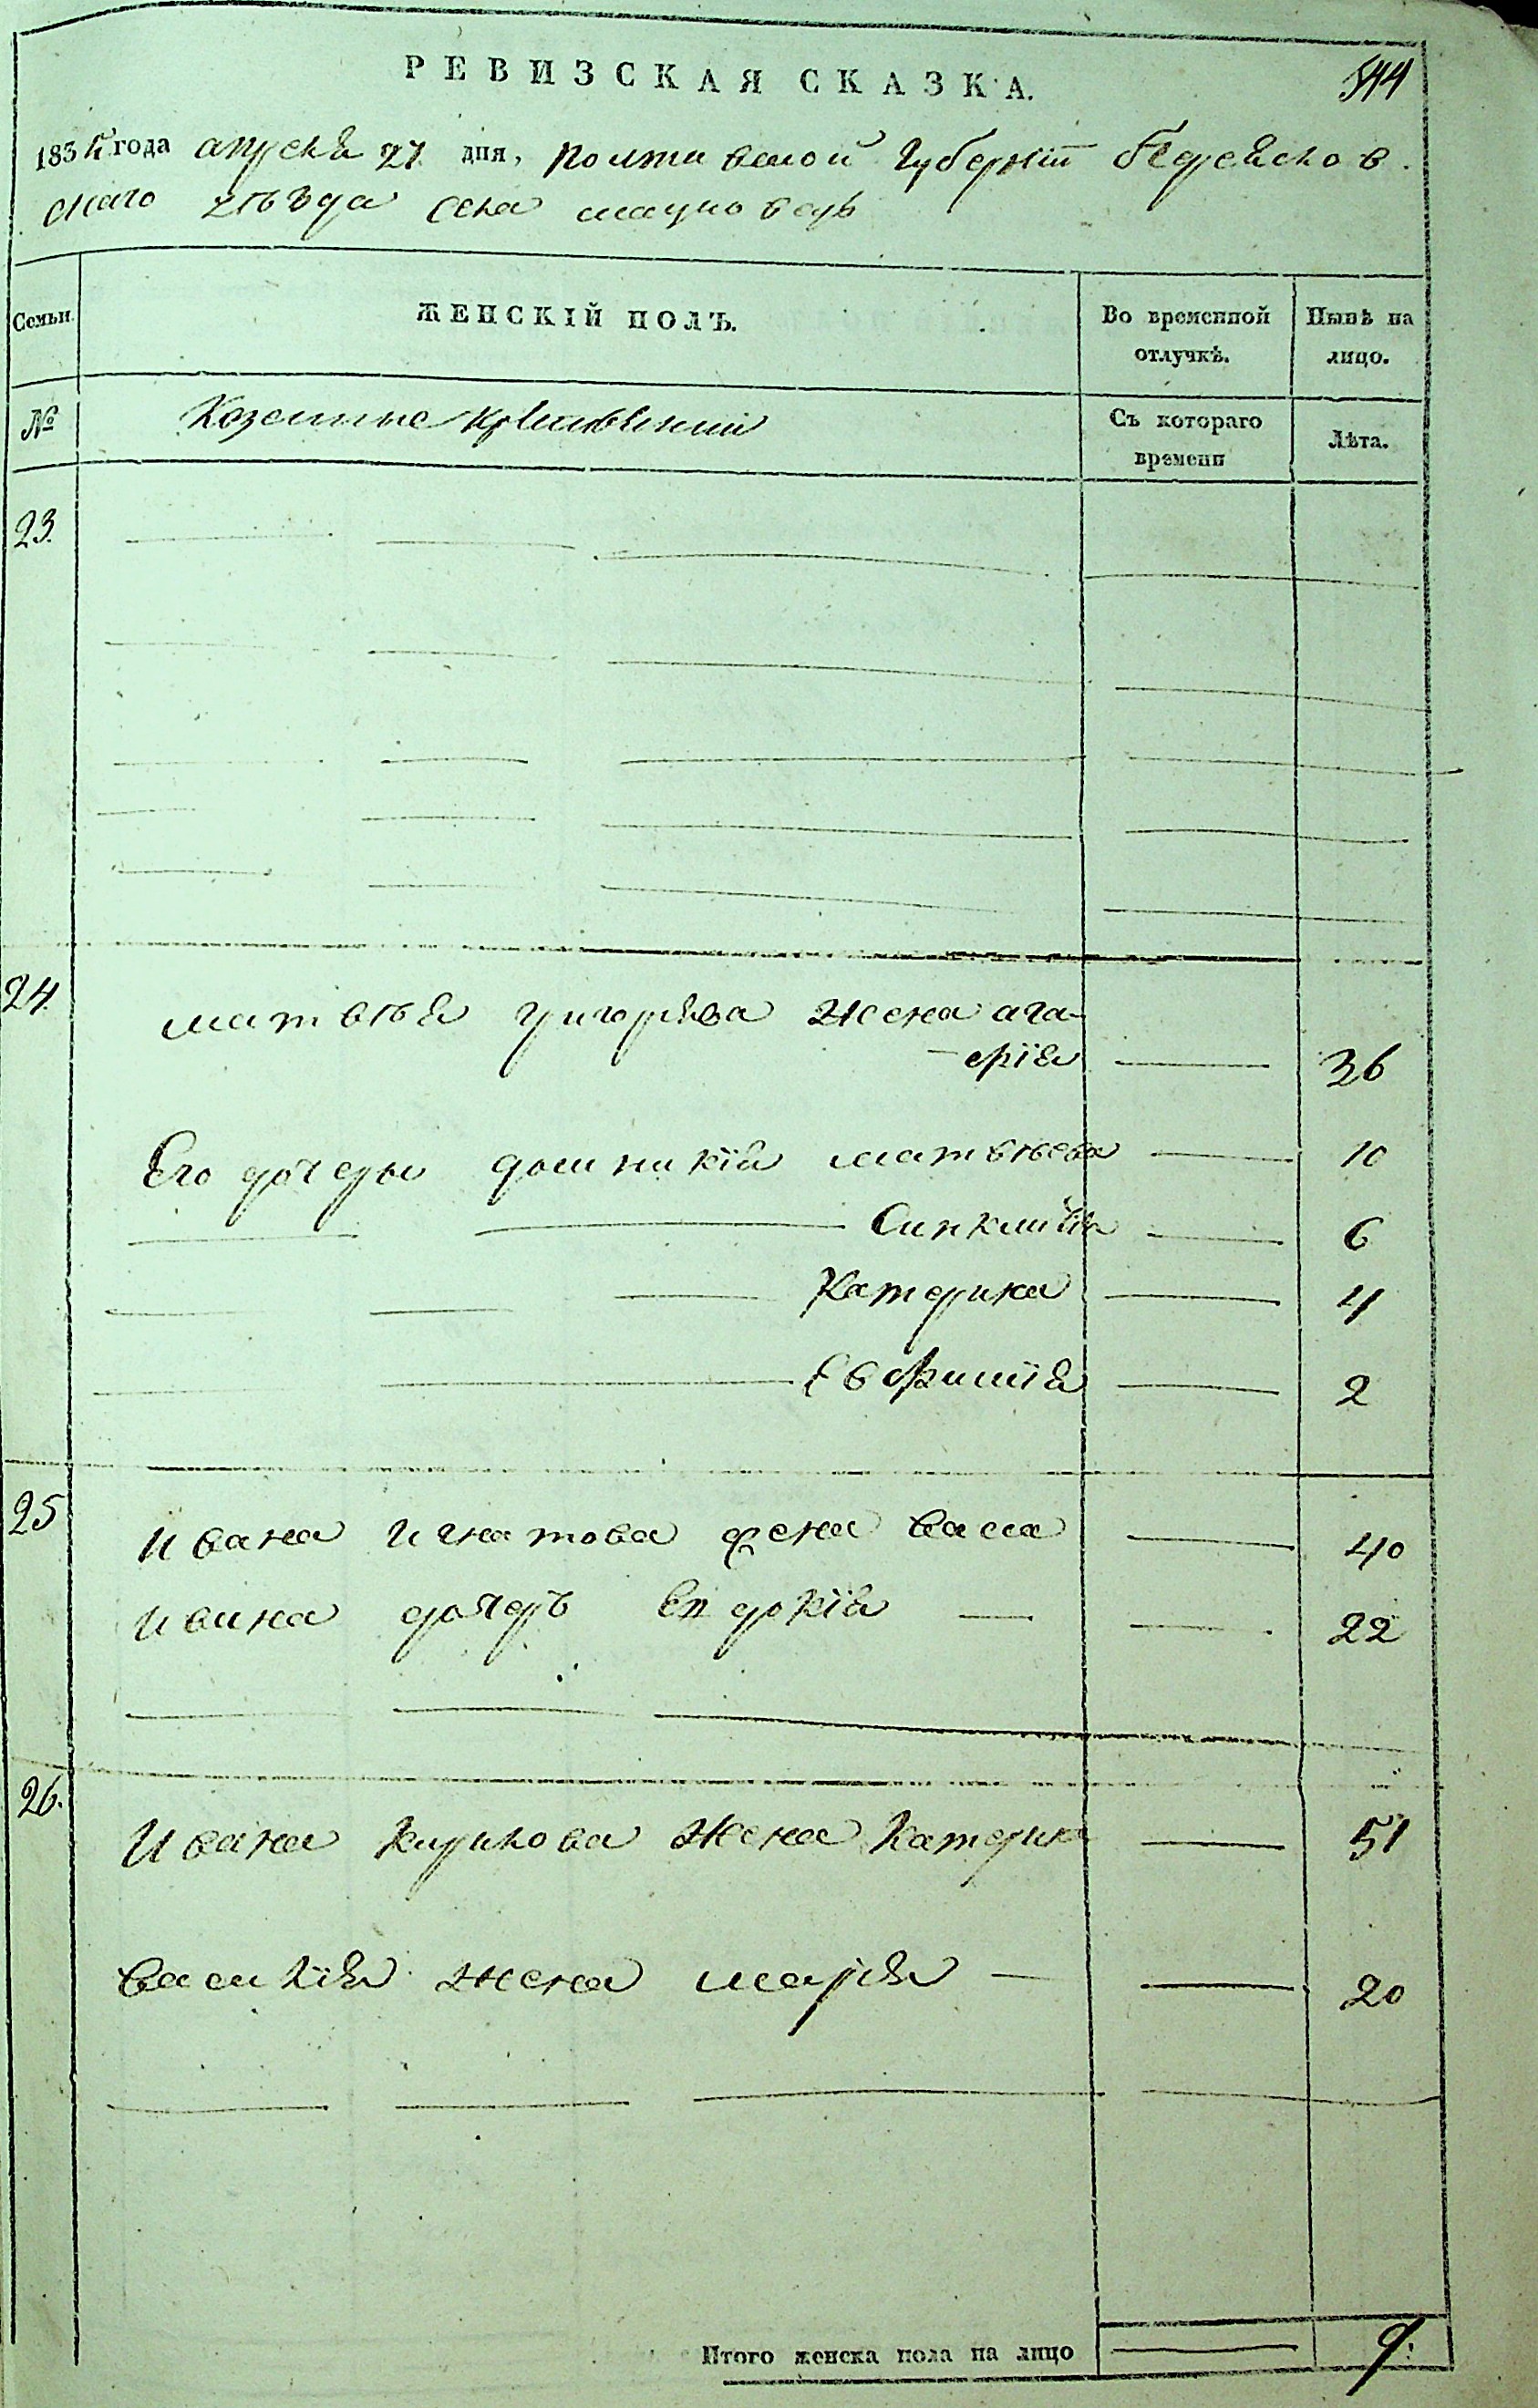 РЕВИЗСКАЯ СКАЗКА.
544
183 года апреля 27 дня, Полтавской Губерніи Переяслов
скаго уѣзда села
Семьи. ЖЕНСКІЙ ПОЛЪ. Во временной отлучкѣ. Нынѣ на лицо.
№ Казенные Съ котораго времени Лѣта.
23.
24. матвѣя григорьева жена ага-
-фія 36
Его дочеры домникія матвѣева 10
Синклитія 6
Катерина 4
Евфимія 2
25 ивана игнатова жена васса 40
ивана дочерь Евдокія 22
26. Ивана кирилова жена Катерина 51
василія жена марія 20
Итого женска пола на лицо 9.